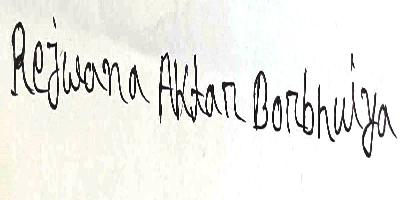 Rejwana Aktar Borbhuiya